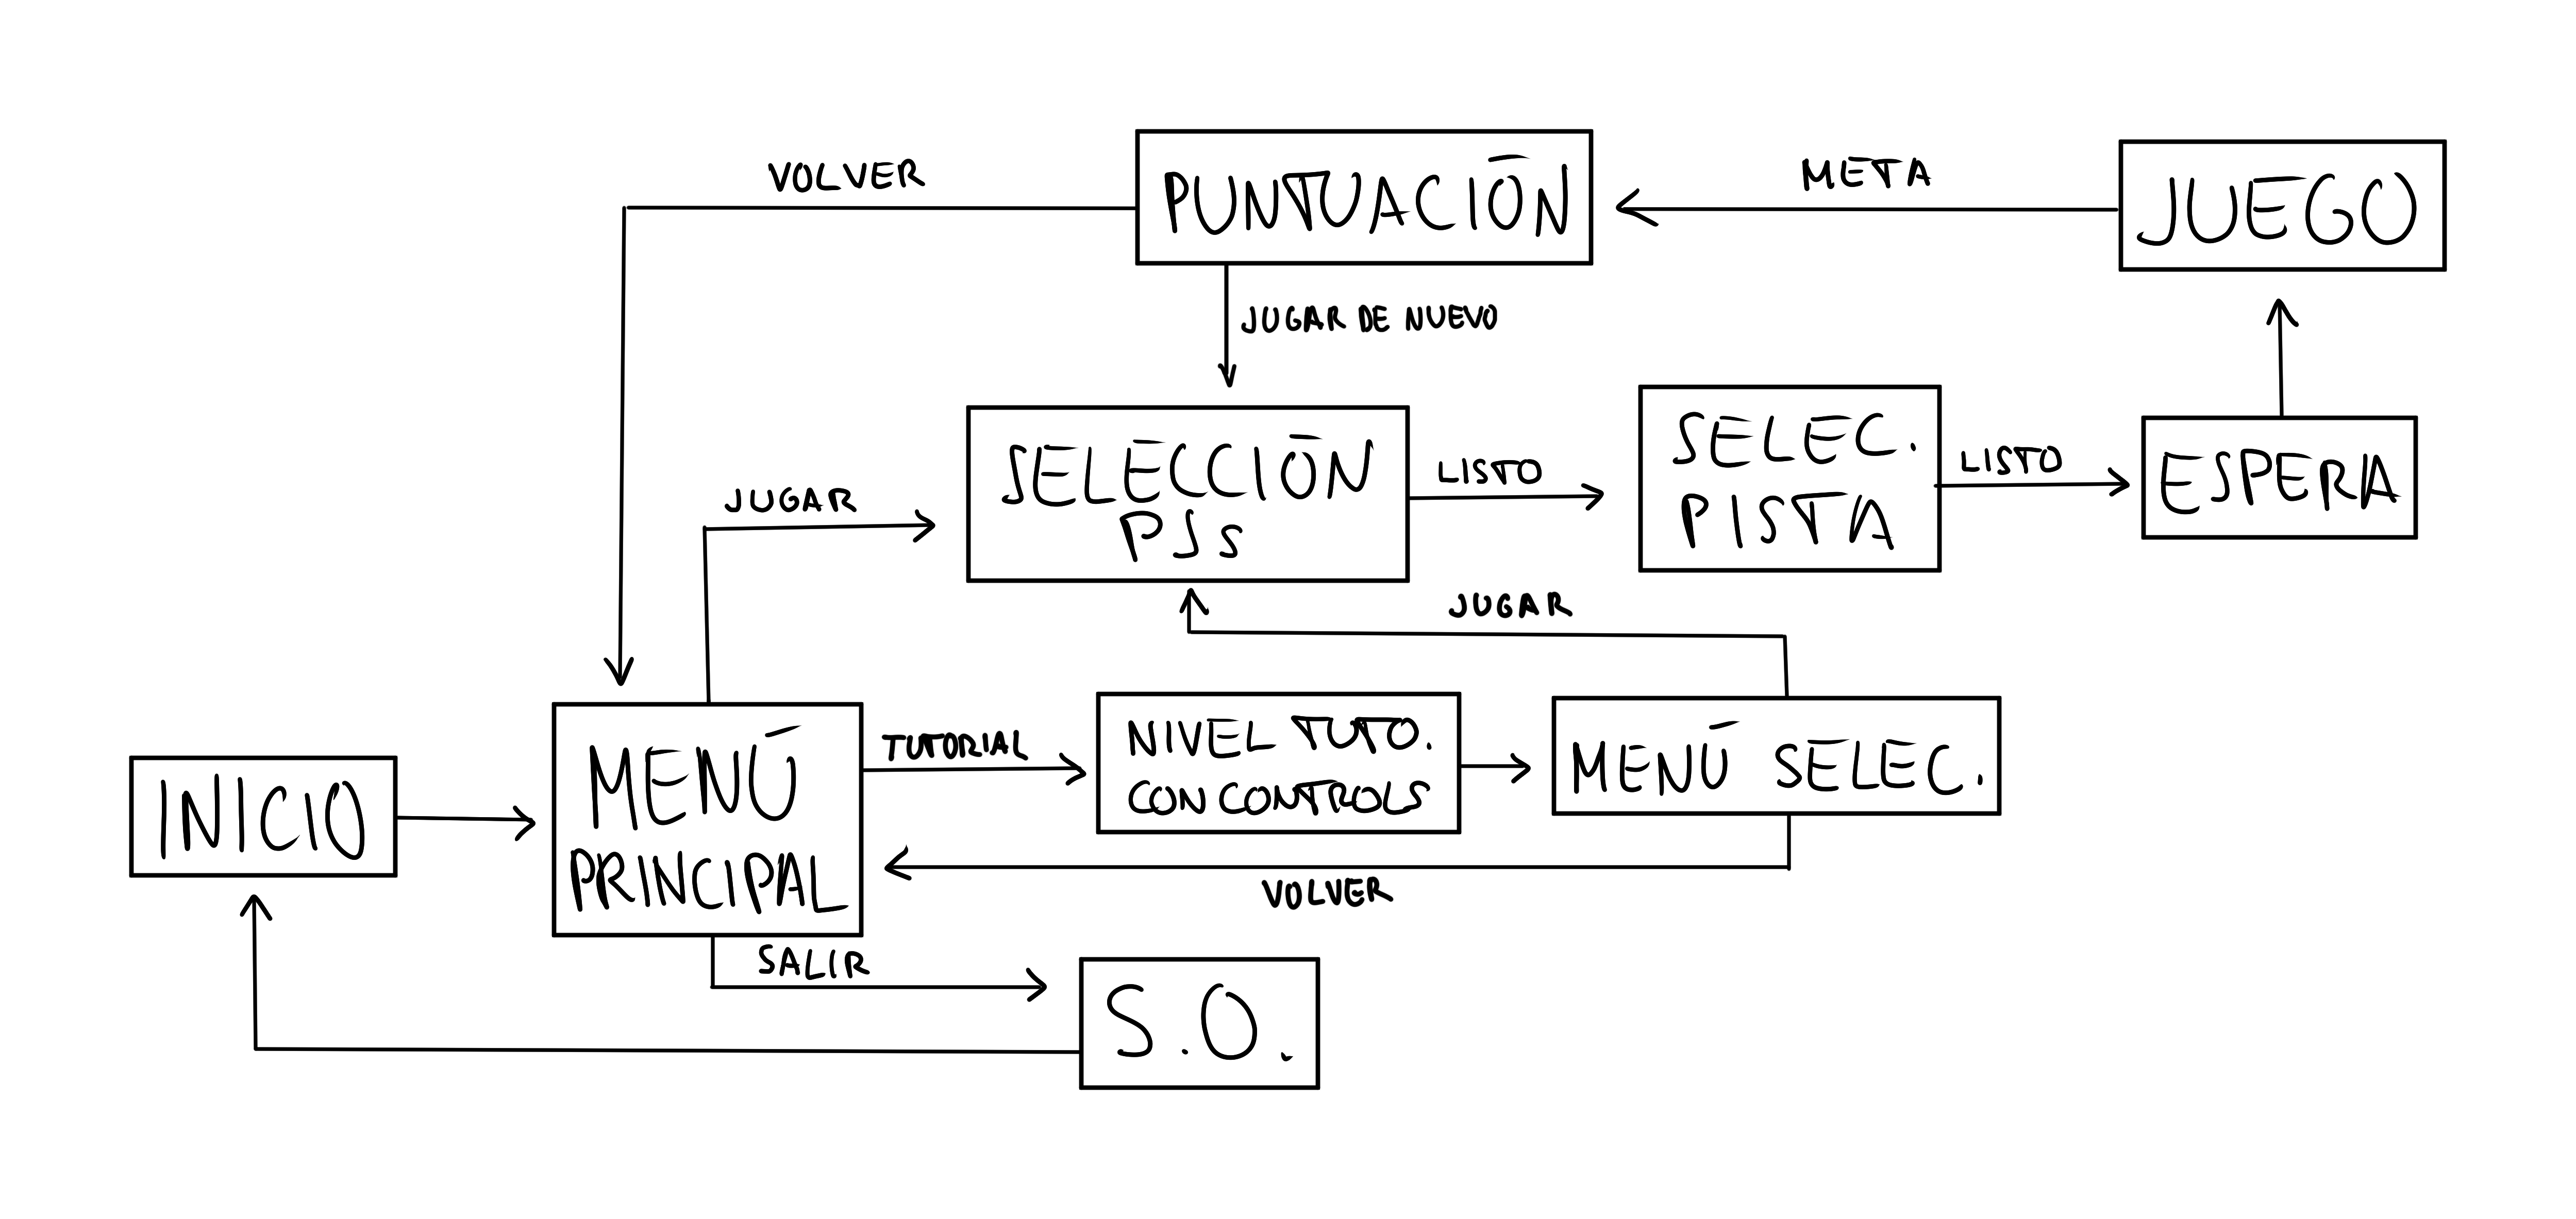 VOLVER
PUNTUACIÓN
META
JUEGO
JUGAR DE NUEVO
SELECCIÓN
PJs
LISTO
SELEC.
PISTA
LISTO
ESPERA
JUGAR
JUGAR
INICIO
MENÚ
PRINCIPAL
TUTORIAL
NIVEL TUTO.
CON CONTROLS
MENÚ SELEC.
VOLVER
SALIR
S.O.